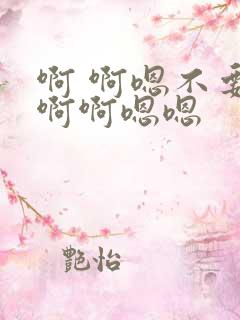 啊 啊嗯不要
啊啊嗯嗯
艷怡